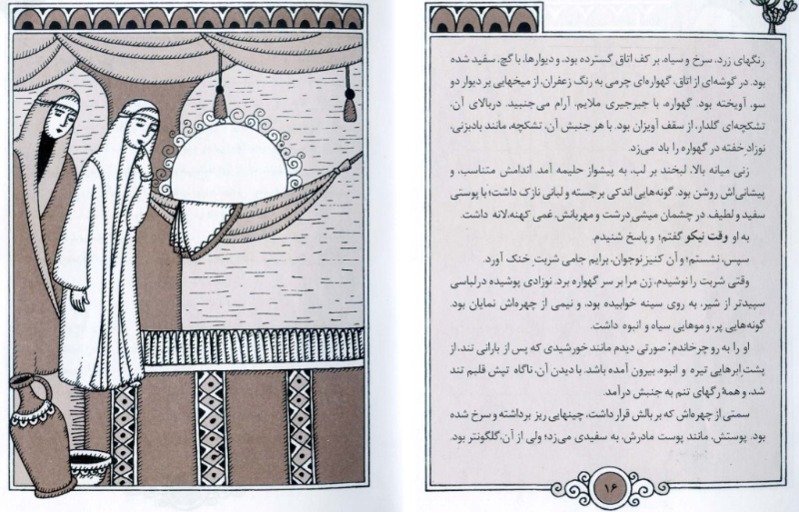 رنگهای زرد، سرخ و سیاه، بر کف اتاق گسترده بود. و دیوارها، با گچ، سفید شده
بود. در گوشه‌ای از اتاق، گهواره‌ای چرمی به رنگ زعفران، از میخهایی بر دیوار دو
سو، آویخته بود. گهواره، با جیرجیری ملایم، آرام می‌جنبید. دربالای آن،
تشکچه‌ای گلدار، از سقف آویزان بود. با هر جنبش آن، تشکچه، مانند بادبزنی،
نوزادِ خفته در گهواره را باد می‌زد.
زنی میانه بالا، لبخند بر لب، به پیشواز حلیمه آمد. اندامش متناسب، و
پیشانی‌اش روشن بود. گونه‌هایی اندکی برجسته و لبانی نازک داشت؛ با پوستی
سفید و لطیف. در چشمان میشیِ درشت و مهربانش، غمی کهنه، لانه داشت.
به او وقت نیکو گفتم؛ و پاسخ شنیدم.
سپس، نشستم؛ و آن کنیز نوجوان، برایم جامی شربتِ خنک آورد.
وقتی شربت را نوشیدم، زن مرا بر سر گهواره برد. نوزادی پوشیده درلباسی
سپیدتر از شیر، به روی سینه خوابیده بود، و نیمی از چهره‌اش نمایان بود.
گونه‌هایی پر، و موهایی سیاه و انبوه داشت.
او را به رو چرخاندم: صورتی دیدم مانند خورشیدی که پس از بارانی تند، از
پشتِ ابرهایی تیره و انبوه، بیرون آمده باشد. با دیدن آن، ناگاه تپش قلبم تند
شد، و همهٔ رگهای تنم به جنبش درآمد.
سمتی از چهره‌اش که بر بالش قرار داشت، چینهایی ریز برداشته و سرخ شده
بود. پوستش، مانند پوست مادرش، به سفیدی می‌زد؛ ولی از آن، گلگونتر بود.
۱۶